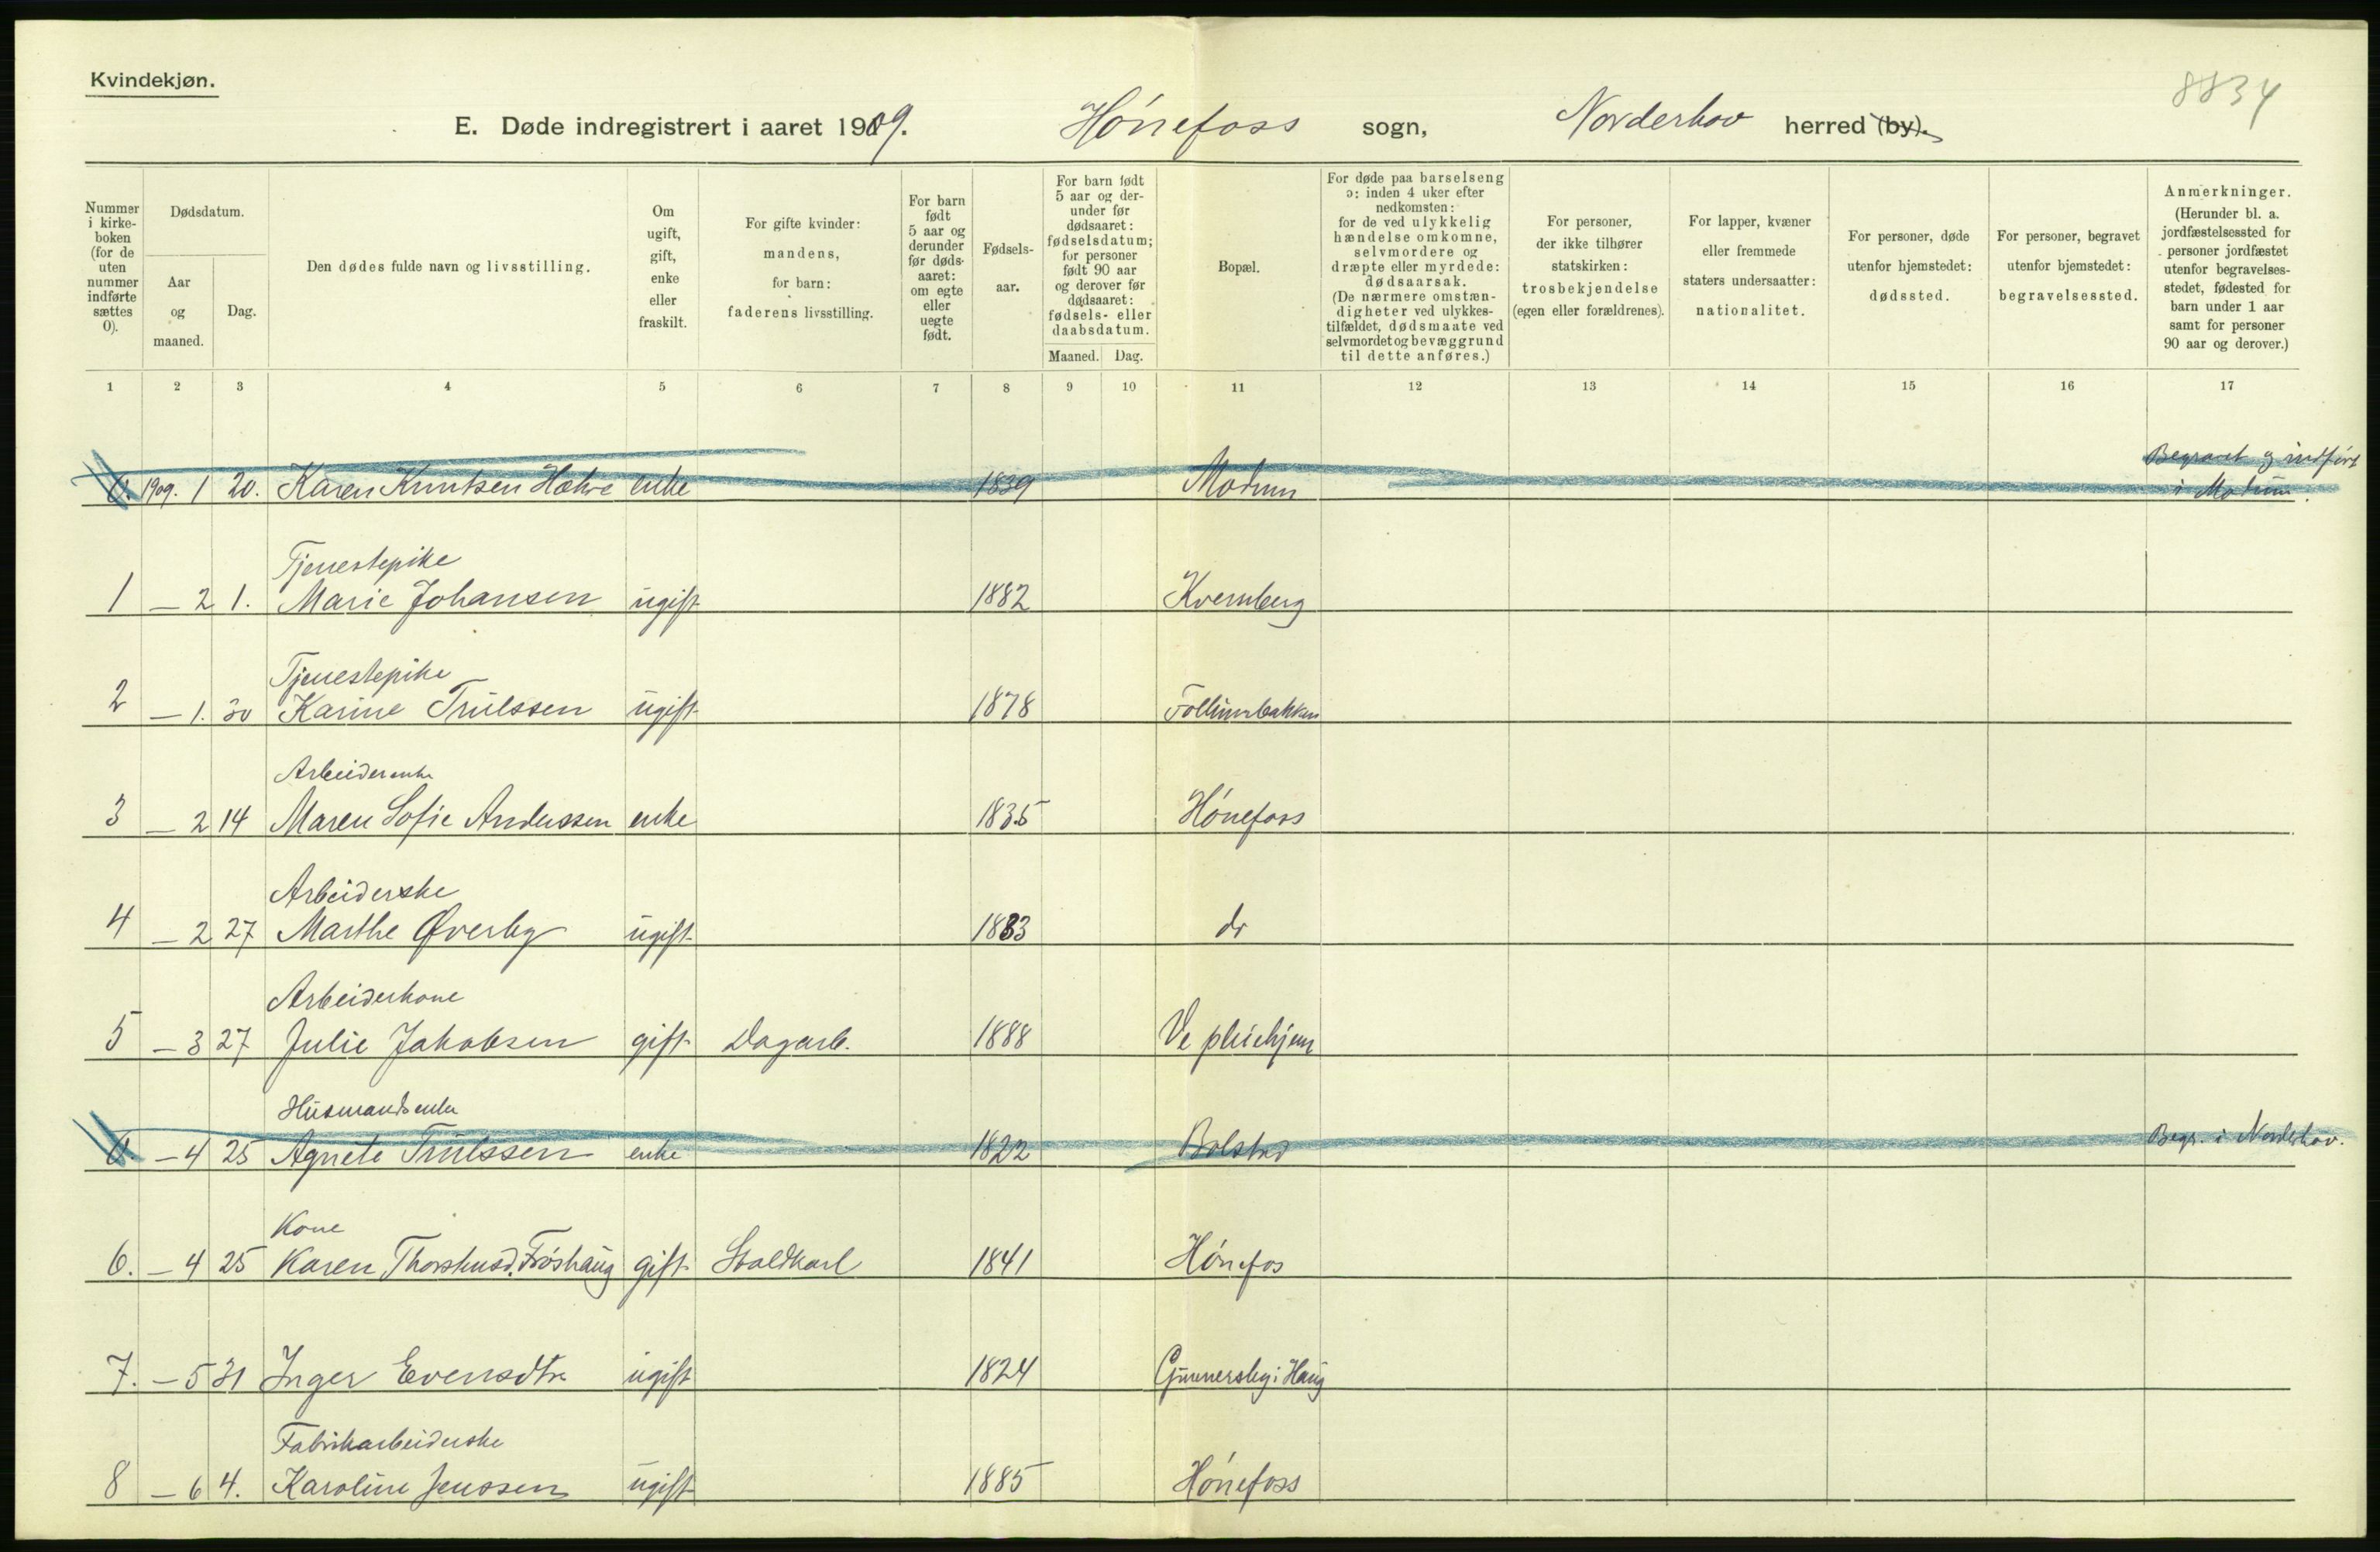 Kvindekjøn.
8834
E. Døde indregistrert i aaret 1909. Hónefoss sogn, Norderhov herred (by).
Nummer i kirke-boken (for de uten nummer indførte sættes 0).
Dødsdatum.
Aar og maaned.
Dag.
Den dødes fulde navn og livsstilling.
Om ugift, gift, enke eller fraskilt.
For gifte kvinder: mandens, for barn: faderens livsstilling.
For barn født 5 aar og derunder før døds-aaret: om egte eller uegte født.
Fødsels-aar.
For barn født 5 aar og der-under før dødsaaret: fødselsdatum; for personer født 90 aar og derover før dødsaaret: fødsels- eller daabsdatum.
Maaned. Dag.
Bopæl.
For døde paa barselseng ɔ: inden 4 uker efter nedkomsten: for de ved ulykkelig hændelse omkomne, selvmordere og dræpte eller myrdede: dødsaarsak. (De nærmere omstæn-digheter ved ulykkes-tilfældet, dødsmaate ved selvmordet og bevæggrund til dette anføres.)
For personer, der ikke tilhører statskirken: trosbekjendelse (egen eller forældrenes).
For lapper, kvæner eller fremmede staters undersaatter: nationalitet.
For personer, døde utenfor hjemstedet: dødssted.
For personer, begravet utenfor hjemstedet: begravelsessted.
Anmerkninger. (Herunder bl. a. jordfæstelsessted for personer jordfæstet utenfor begravelses-stedet, fødested for barn under 1 aar samt for personer 90 aar og derover.)
1 2 3 4 5 6 7 8 9 10 11 12 13 14 15 16 17
0. 1909. 1 20. Karen Knutsen Hæhre enke 1839 Modum Begravet og indført
i Modum.
Tjenestepike
1 — 2 1. Marie Johansen ugift 1882 Kvernberg
Tjenestepike
2 — 1. 30 Karine Trulssen ugift 1878 Follumbakken
Arbeiderenke
3 — 2 14 Maren Sofie Anderssen enke 1835 Hónefoss
Arbeiderske
4 — 2 27 Marthe Øverby ugift 1883 do
Arbeiderkone
5 — 3 27 Julie Jakobsen gift Dagarb. 1888 Ve pleiehjem
Husmandsenke
0. — 4 25 Agnete Trulssen enke 1822 Bolstad Begr. i Norderhov.
Kone
6. — 4 25 Karen Thorshusd. Frøshaug gift Staldkarl 1841 Hónefos
7. — 5 31 Inger Evensdtr ugift 1824 Gunnersby i Haug
Fabrikarbeiderske
8 — 6 4. Karoline Jenssen ugift 1885 Hónefoss